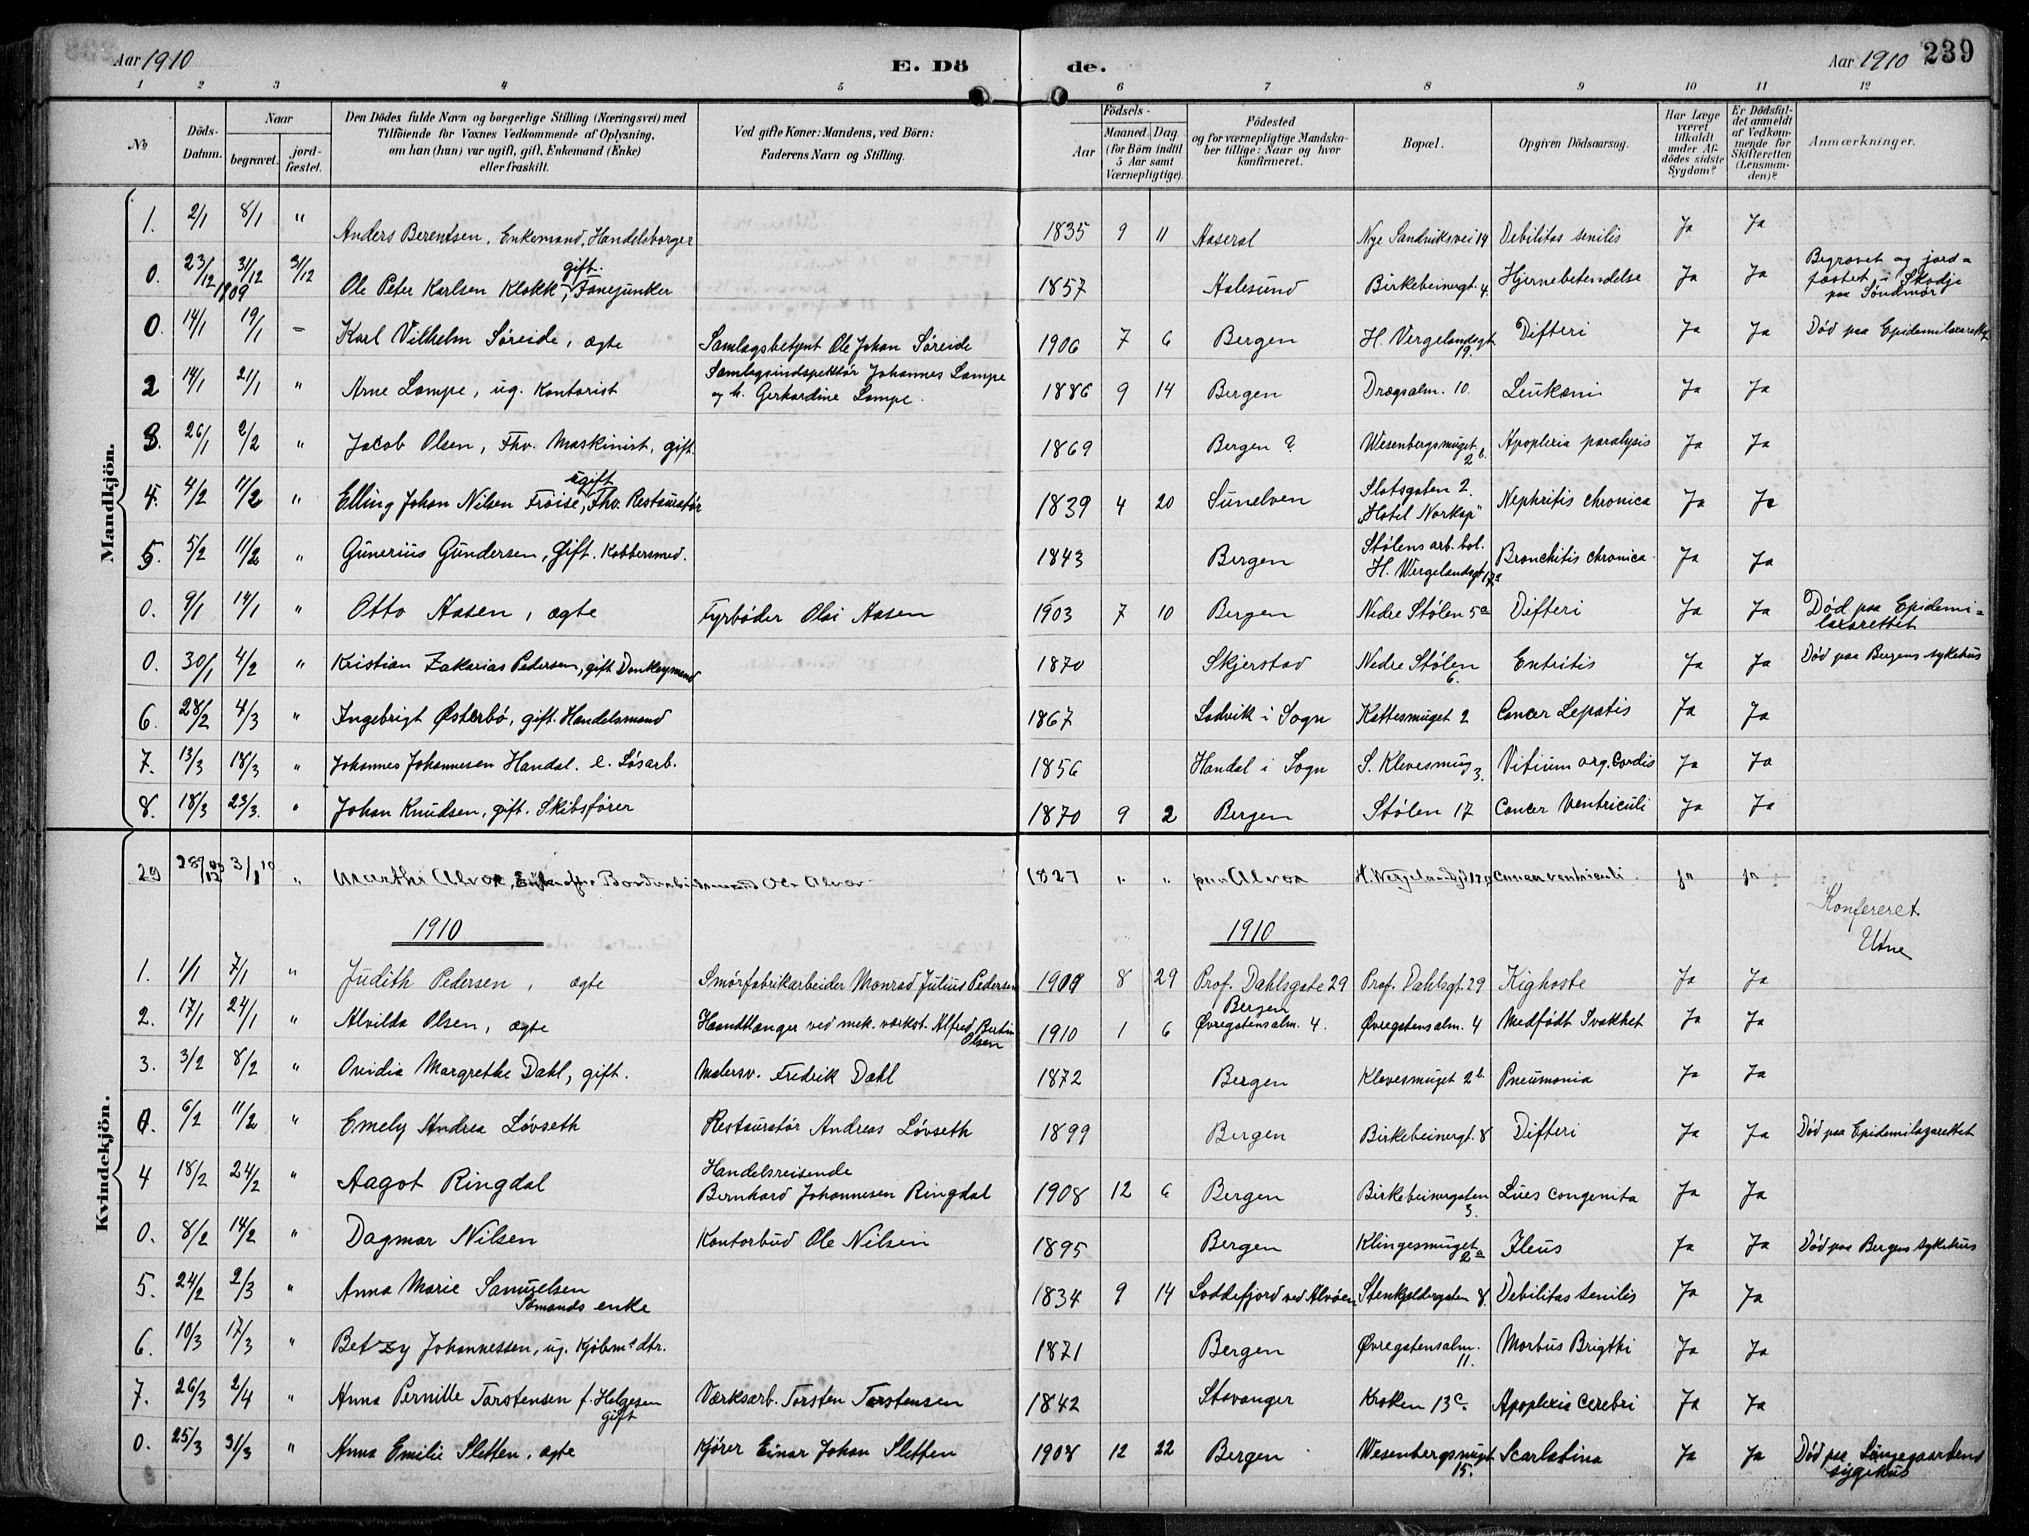 Aar 1910 E. Dö de. Aar 1910 239
1 2 3 4 5 6 7 8 9 10 11 12
No Döds-Datum. Naar begravet. jordfæstet. Den Dödes fulde Navn og borgerlige Stilling (Næringsvei) med Tilföiende for Voxnes Vedkommende af Oplysning, om han (hun) var ugift, gift, Enkemand (Enke) eller fraskilt. Ved gifte Koner: Mandens, ved Börn: Faderens Navn og Stilling. Födsels- Aar Maaned. Dag. (for Börn indtil 5 Aar samt Værnepligtige). Födested og for værnepligtige Mandskaber tillige: Naar og hvor konfirmeret. Bopæl. Opgiven Dödsaarsag. Har Læge været tilkaldt under Afdödes sidste Sygdom? Er Dödsfaldet anmeldt af Vedkommende for Skifteretten (Lensmanden)? Anmærkninger.
Mandkjön.
1. 2/1 8/1 " Anders Berentsen, Enkemand, Handelsborger 1835 9 11 Haseral Nye Sandviksvei 14 Debilitas senilis Ja Ja
0. 23/12 1909 31/12 31/12 Ole Peter Karlsen Klokk, gift. Fanejunker 1857 Aalesund Birkebeinergt. 4. Hjernebetendelse Ja Ja Begravet og jordfæstet i Skodje paa Søndmør
0 14/1 19/1 – Karl Vilhelm Søreide, ægte Samlagsbetjent Ole Johan Søreide 1906 7 6 Bergen H. Vergelandsgt. 19. Difteri Ja Ja Død paa Epidemilazarettet
2 14/1 21/1 " Arne Lampe, ug. Kontorist Samlagsindspektør Johannes Lampe og h. Gerhardine Lampe. 1886 9 14 Bergen Drægsalm. 10. Leukæmi Ja Ja
3. 26/1 2/2 " Jacob Olsen, Fhv. Maskinist, gift. 1869 Bergen ? Wesenbergsmuget 2 b. Apoplexia paralysis Ja Ja
4. 4/2 11/2 " Elling Johan Nilsen Frøise, ugift Fhv. Restauratør 1839 4 20 Sunelven Slotsgaten 2. "Hotel Norkap" Nephritis chronica Ja Ja
5. 5/2 11/2 " Gunerius Gundersen, Gift. Kobbersmed. 1843 Bergen Stølens arb. bol. H. Wergelandsgt. 17a Bronchitis chronica. Ja Ja
0. 9/1 14/1 " Otto Aasen, ægte Fyrbøder Olai Aasen 1903 7 10 Bergen Nedre Stølen 5a Difteri Ja Ja Død paa Epidemilazarettet
0. 30/1 4/2 " Kristian Zakarias Pedersen, gift Donkeymand 1870 Skjerstad Nedre Stølen 6. Entritis Ja Ja Død paa Bergens sykehus
6. 28/2 4/3 " Ingebrigt Østerbö, gift. Handelsmand 1867 Ladvik i Sogn Kattesmuget 2 Cancer Lepatis Ja Ja
7. 13/3 18/3 " Johannes Johannesen Handal. e. Løsarb. 1856 Handal i Sogn S. Klevesmug 3. Vitium org. Cordis Ja Ja
8. 18/3 23/3. " Johan Knudsen, gift. Skibsfører 1870 9 2 Bergen Stølen 17 Cancer Ventriculi Ja Ja
Kvindekjön.
29 28/12 3/1 10 " Marthe Alvor, Ole Alvor 1827 " " Alvor H. Wergelandsgt. Cancer ventriculi Ja Ja
1910 1910 Konfereret
Utne
1. 1/1 7/1 " Judith Pedersen, ægte Smørfabrikarbeider Monrad Julius Pedersen 1909 8 29 Prof. Dahlsgate 29 Bergen Prof. Dahlsgt. 29 Kighoste Ja Ja
2. 17/1 24/1 " Alvilda Olsen, ægte Haandtlanger ved mek. værkst. Alfred Bertin Olsen 1910 1 6 Øvregatensalm. 4. Øvregatensalm. 4 Medfødt Svakhet Ja Ja
3. 3/2 8/2 " Ovidia Margrethe Dahl, gift. Malersv. Fredrik Dahl 1872 Bergen Klevesmuget 2b Pneumonia Ja Ja
0. 6/2 11/2 " Emely Andrea Løvseth Restauratør Andreas Løvseth 1899 Bergen Birkebeinergt. 8 Difteri Ja Ja Død paa Epidemilazarettet
4 18/2 24/2 " Aagot Ringdal Handelsreisende Bernhard Johannesen Ringdal 1908 12 6 Bergen Birkebeinergaten 3. Lues congenita Ja Ja
0. 8/2 14/2 " Dagmar Nilsen Kontorbud Ole Nilsen 1895 Bergen Klingesmuget 2a Ileus Ja Ja Død paa Bergens sykehus
5. 24/2 2/3 " Anna Marie Samuelsen Sømands enke 1834 9 14 Loddefjord ved Alvøen Stenkjeldergaten 8. Debilitas senilis Ja Ja
6. 10/3 17/3 " Betzy Johannessen, ug. Kjøbm. dtr. 1871 Bergen Øvregatensalm. 11. Morbus Brigthi Ja Ja
7. 26/3 2/4 " Anna Pernille Torstensen f. Helgesen gift Værksarb. Torsten Torstensen 1842 Stavanger Kroken 13c. Apoplexia cerebri Ja Ja
0. 25/3 31/3 " Anna Emilie Sletten, ægte Kjører Einar Johan Sletten 1908 12 22 Bergen Wesenbergsmugt 15. Scarlatina Ja Ja Død paa Lungegaardens sygehus